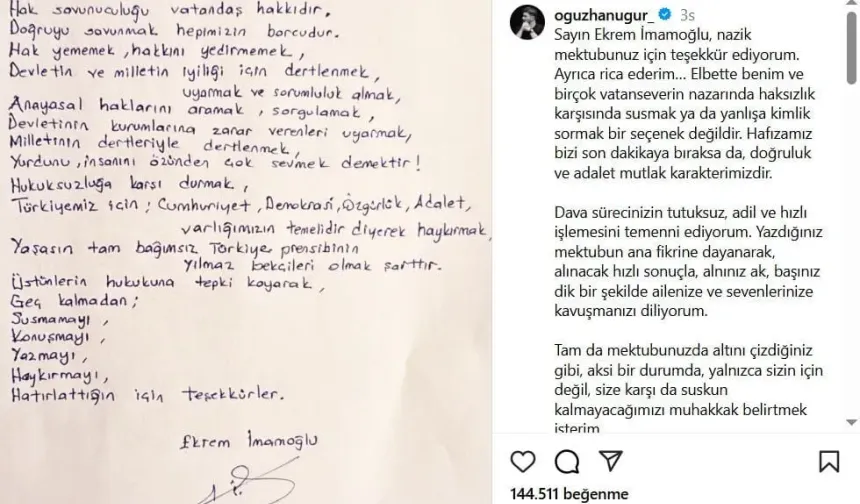 Hak savunuculuğu vatandaş hakkıdır.
Doğruyu savunmak hepimizin borcudur.
Hak yememek, hakkını yedirmemek,
Devletin ve milletin iyiliği için dertlenmek,
uyarmak ve sorumluluk almak,
Anayasal haklarını aramak, sorgulamak,
Devletinin kurumlarına zarar verenleri uyarmak,
Milletinin dertleriyle dertlenmek,
Yurdunu, insanını özünden çok sevmek demektir!
Hukuksuzluğa karşı durmak,
Türkiyemiz için; Cumhuriyet, Demokrasi, Özgürlük, Adalet,
varlığımızın temelidir diyerek haykırmak,
Yaşasın tam bağımsız Türkiye prensibinin
yılmaz bekçileri olmak şarttır.
Üstünlerin hukukuna tepki koyarak,
Geç kalmadan;
Susmamayı,
Konuşmayı,
Yazmayı,
Haykırmayı,
Hatırlattığın için teşekkürler.
Ekrem İmamoğlu
oguzhanugur_ 3s
Sayın Ekrem İmamoğlu, nazik
mektubunuz için teşekkür ediyorum.
Ayrıca rica ederim... Elbette benim ve
birçok vatanseverin nazarında haksızlık
karşısında susmak ya da yanlışa kimlik
sormak bir seçenek değildir. Hafızamız
bizi son dakikaya bıraksa da, doğruluk
ve adalet mutlak karakterimizdir.
Dava sürecinizin tutuksuz, adil ve hızlı
işlemesini temenni ediyorum. Yazdığınız
mektubun ana fikrine dayanarak,
alınacak hızlı sonuçla, alnınız ak, başınız
dik bir şekilde ailenize ve sevenlerinize
kavuşmanızı diliyorum.
Tam da mektubunuzda altını çizdiğiniz
gibi, aksi bir durumda, yalnızca sizin için
değil, size karşı da suskun
kalmayacağımızı muhakkak belirtmek
isterim
144.511 beğenme